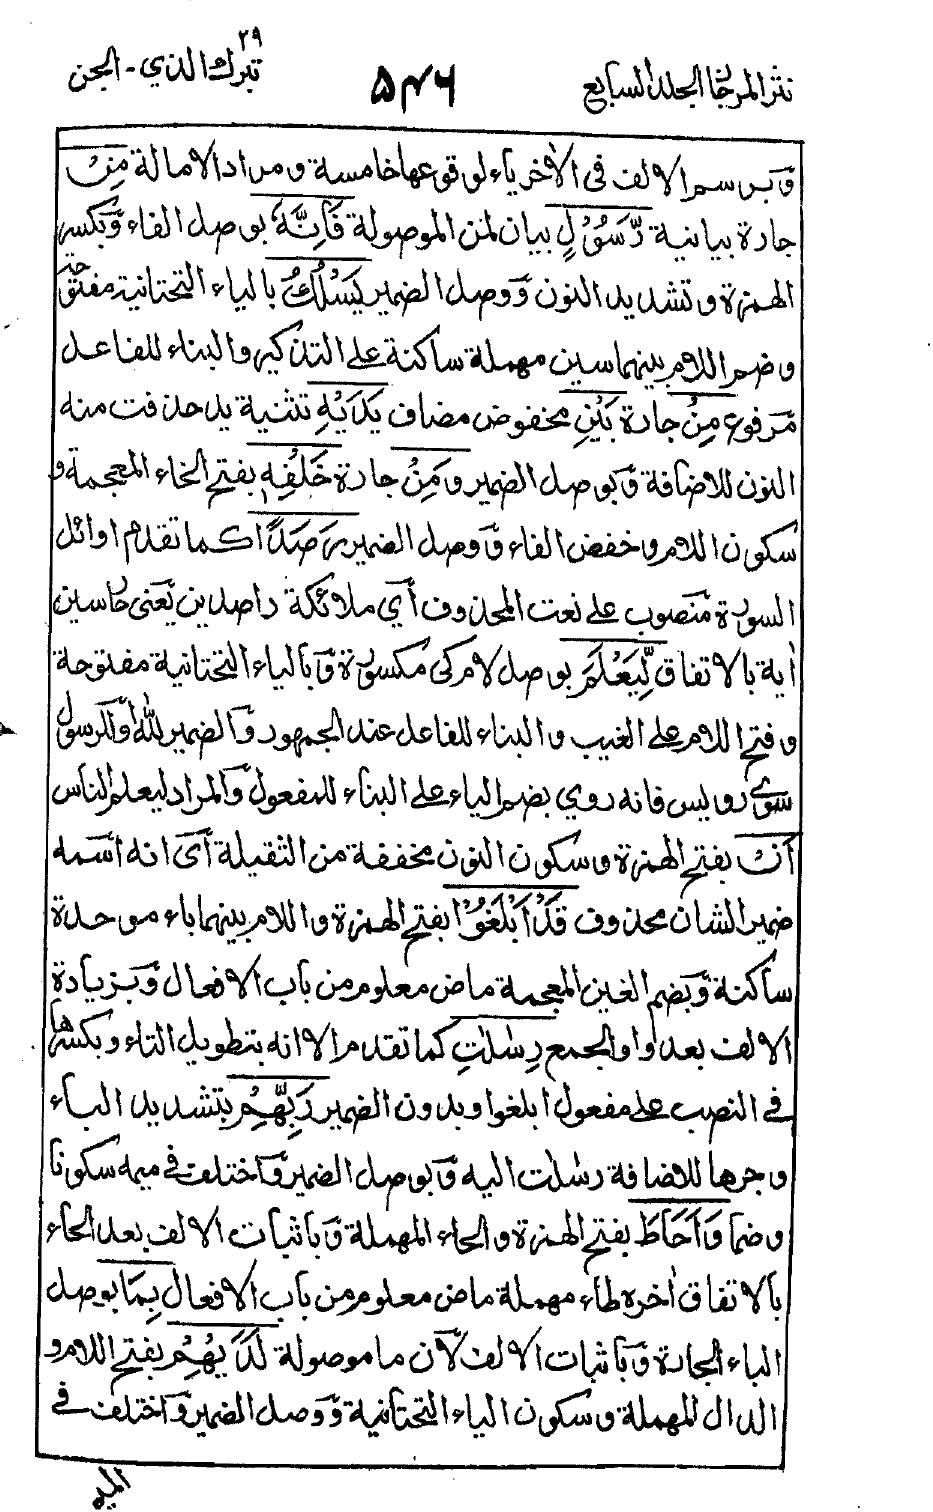 نثر المرجان المجلد السابع
۵۴۶
تبرك الذي - الجن
۲۹
وَبرسم الالف فى الأخر ياء لوقوعها خامسة ومراد الامالة مِنْ
جارة بيانية رَّسُوْلٍ بيان لمن الموصولة فَاِنَّهٗ بوصل الفاء وَبكسر
الهمزة وتشديد النون وَوصل الضمير يَسْلُكُ بالياء التحتانية مفتوحة
وضم اللام بينهما سين مهملة ساكنة على التذكير والبناء للفاعل
مَرفوع مِنْۢ جارة بَيْنِ مخفوض مضاف يَدَيْهِ تثنية يد حذفت منه
النون للاضافة وَبوصل الضمير وَمِنْ جارة خَلْفِهٖ بفتح الخاء المعجمة و
سكون اللام وخفض الفاء وَوصل الضمير رَصَدًا كما تقدم اوائل
السورة مَنصوب على نعت المحذوف أي ملائكة راصدين يَعنى حارسين
أية بالاتفاق لِّيَعْلَمَ بوصل لام كى مكسورة وَبالياء التحتانية مفتوحة
وفتح اللام على الغيب والبناء للفاعل عند الجمهور وَالضمير لله أو للرسول
سوى رويس فانه روي بضم الياء على البناء للمفعول وَالمراد ليعلم الناس
أَنْ بفتح الهمزة وسكون النون مخففة من الثقيلة أَى انه اسمه
ضمير الشان محذوف قَدْ اَبْلَغُوْا بفتح الهمزة واللام بينهما باء موحدة
ساكنة وَبضم الغين المعجمة ماض معلوم من باب الافعال وَبزيادة
الالف بعد واو الجمع رِسٰلٰتِ كما تقدم الا انه بتطويل التاء وبكسرها
فى النصب على مفعول ابلغوا وبدون الضمير رَبِّهِمْ بتشديد الباء
وجرها للاضافة رسٰلٰت اليه وَبوصل الضمير وَاختلف في ميمه سكونا
وضما وَاَحَاطَ بفتح الهمزة والحاء المهملة وَباثبات الالف بعد الحاء
بالاتفاق أخره طاء مهملة ماض معلوم من باب الافعال بِمَا بوصل
الباء الجارة وَباثبات الالف لأن ما موصولة لَدَيْهِمْ بفتح اللام و
الدال المهملة وسكون الياء التحتانية وَوصل الضمير وَاختلف فى
الميم